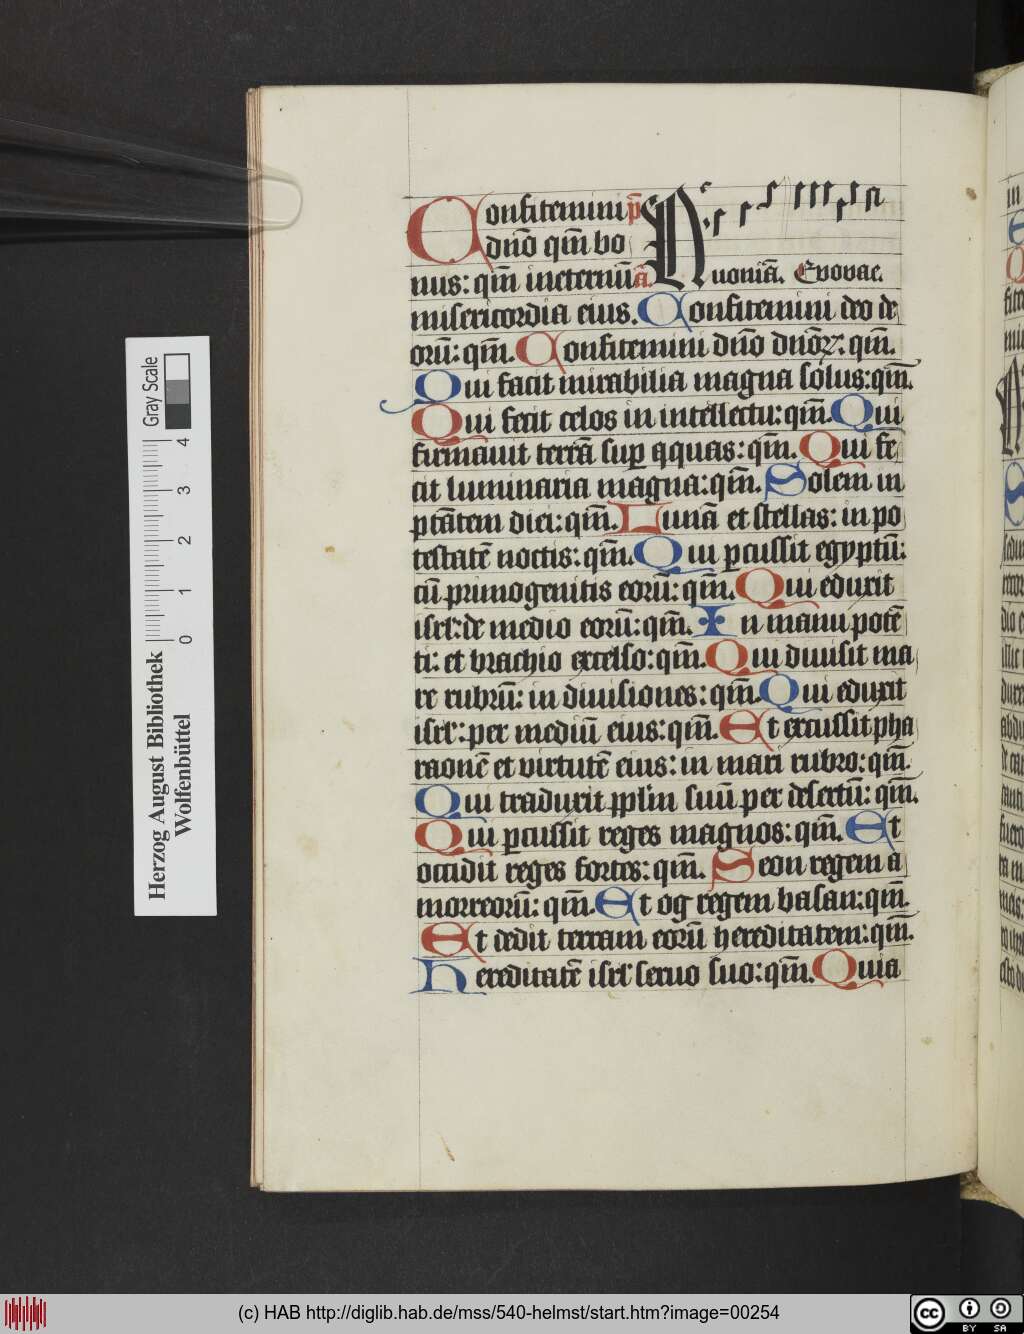 Confitemini p̄s
dn̄o qm̄ bo
nus: qm̄ ineternū a. Quoniā. Euouae.
misericordia eius. Confitemini deo de
orū: qm̄. Confitemini dn̄o dnōꝝ: qm̄.
Qui facit mirabilia magna solus: qm̄.
Qui fecit celos in intellectu: qm̄. Qui
firmauit terrā suꝑ aquas: qm̄. Qui fe
cit luminaria magna: qm̄. Solem in
ptātem diei: qm̄. Lunā et stellas: in po
testatē noctis: qm̄. Qui ꝑcussit egyptū:
cū primogenitis eorū: qm̄. Qui eduxit
isrl̄: de medio eorū: qm̄. In manu potē
ti: et brachio excelso: qm̄. Qui diuisit ma
re rubrū: in diuisiones: qm̄. Qui eduxit
isrl̄: per mediū eius: qm̄. Et excussit pha
raonē et virtutē eius: in mari rubro: qm̄.
Qui traduxit pplm̄ suū per desertū: qm̄.
Qui ꝑcussit reges magnos: qm̄. Et
occidit reges fortes: qm̄. Seon regem a
morreorū: qm̄. Et og regem basan: qm̄.
Et dedit terram eorū hereditatem: qm̄.
Hereditatē isrl̄ seruo suo: qm̄. Quia
Herzog August Bibliothek
Wolfenbüttel
0 1 2 3 4
Gray Scale
(c) HAB http://diglib.hab.de/mss/540-helmst/start.htm?image=00254
cc BY SA